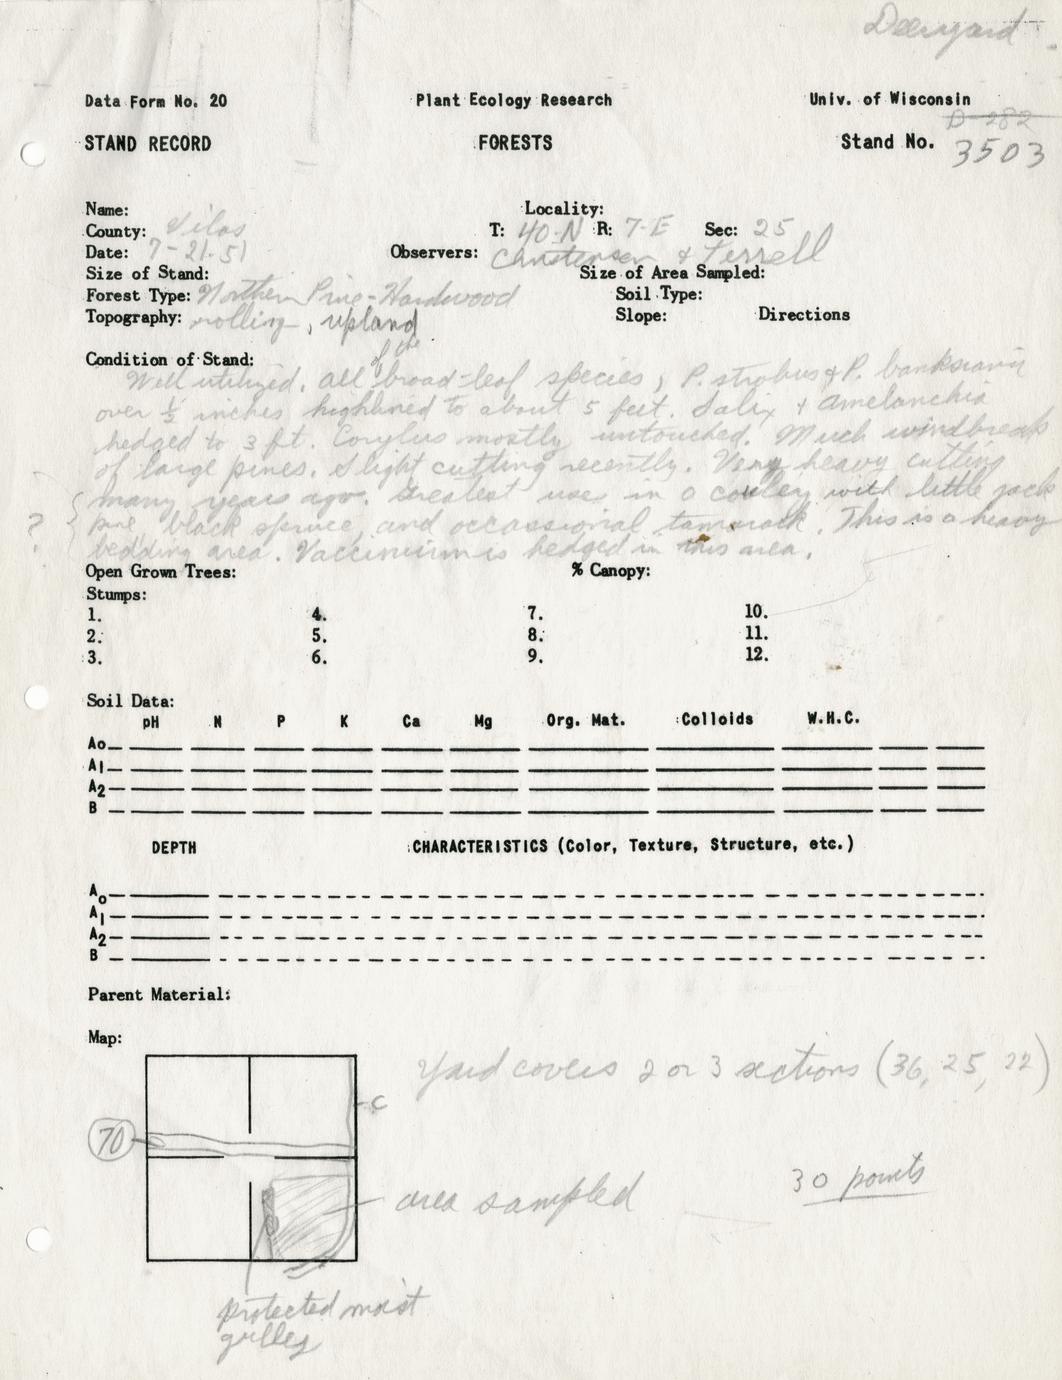 Deeryard
Data Form No. 20 Plant Ecology Research Univ. of Wisconsin
D-282
STAND RECORD FORESTS Stand No. 3503
Name: Locality:
County: Vilas T: 40-N R: 7-E Sec: 25
Date: 7-21-51 Observers: Christensen & Terrell
Size of Stand: Size of Area Sampled:
Forest Type: Northern Pine-Hardwood Soil Type:
Topography: rolling, upland Slope: Directions
Condition of Stand: of the
Well utilized. all broad-leaf species, P. strobus & P. banksiana
over ½ inches highlined to about 5 feet. Salix + amelanchia
hedged to 3 ft. Corylus mostly untouched. Much windbreak
of large pines. Slight cutting recently. Very heavy cutting
many years ago. Greatest uses in a couley with little jack
? pine, black spruce, and occassional tamarack. This is a heavy
bedding area. Vaccinium is hedged in this area.
Open Grown Trees: % Canopy:
Stumps:
1. 4. 7. 10.
2. 5. 8. 11.
3. 6. 9. 12.
Soil Data:
pH N P K Ca Mg Org. Mat. Colloids W.H.C.
Ao
A1
A2
B
DEPTH CHARACTERISTICS (Color, Texture, Structure, etc.)
Ao
A1
A2
B
Parent Material:
Map:
Yard covers 2 or 3 sections (36, 25, 22)
C
70
area sampled 30 points
protected moist
gulley